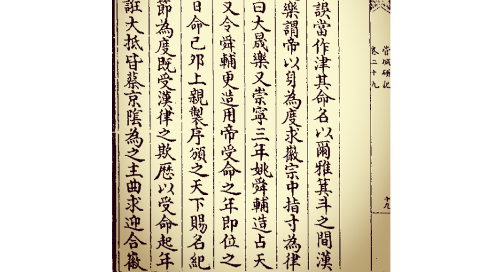 管城碩記
卷二十九
十九
誤當作津其命名以爾雅箕斗之間漢
樂謂帝以身為度求徽宗中指寸為律
曰大晟樂又崇寧三年姚舜輔造占天
又令舜輔更造用帝受命之年即位之
日命己卯上親製序頒之天下賜名紀
節為度既受漢律之欺厯以受命起年
誑大抵皆蔡京陰為之主曲求迎合徽